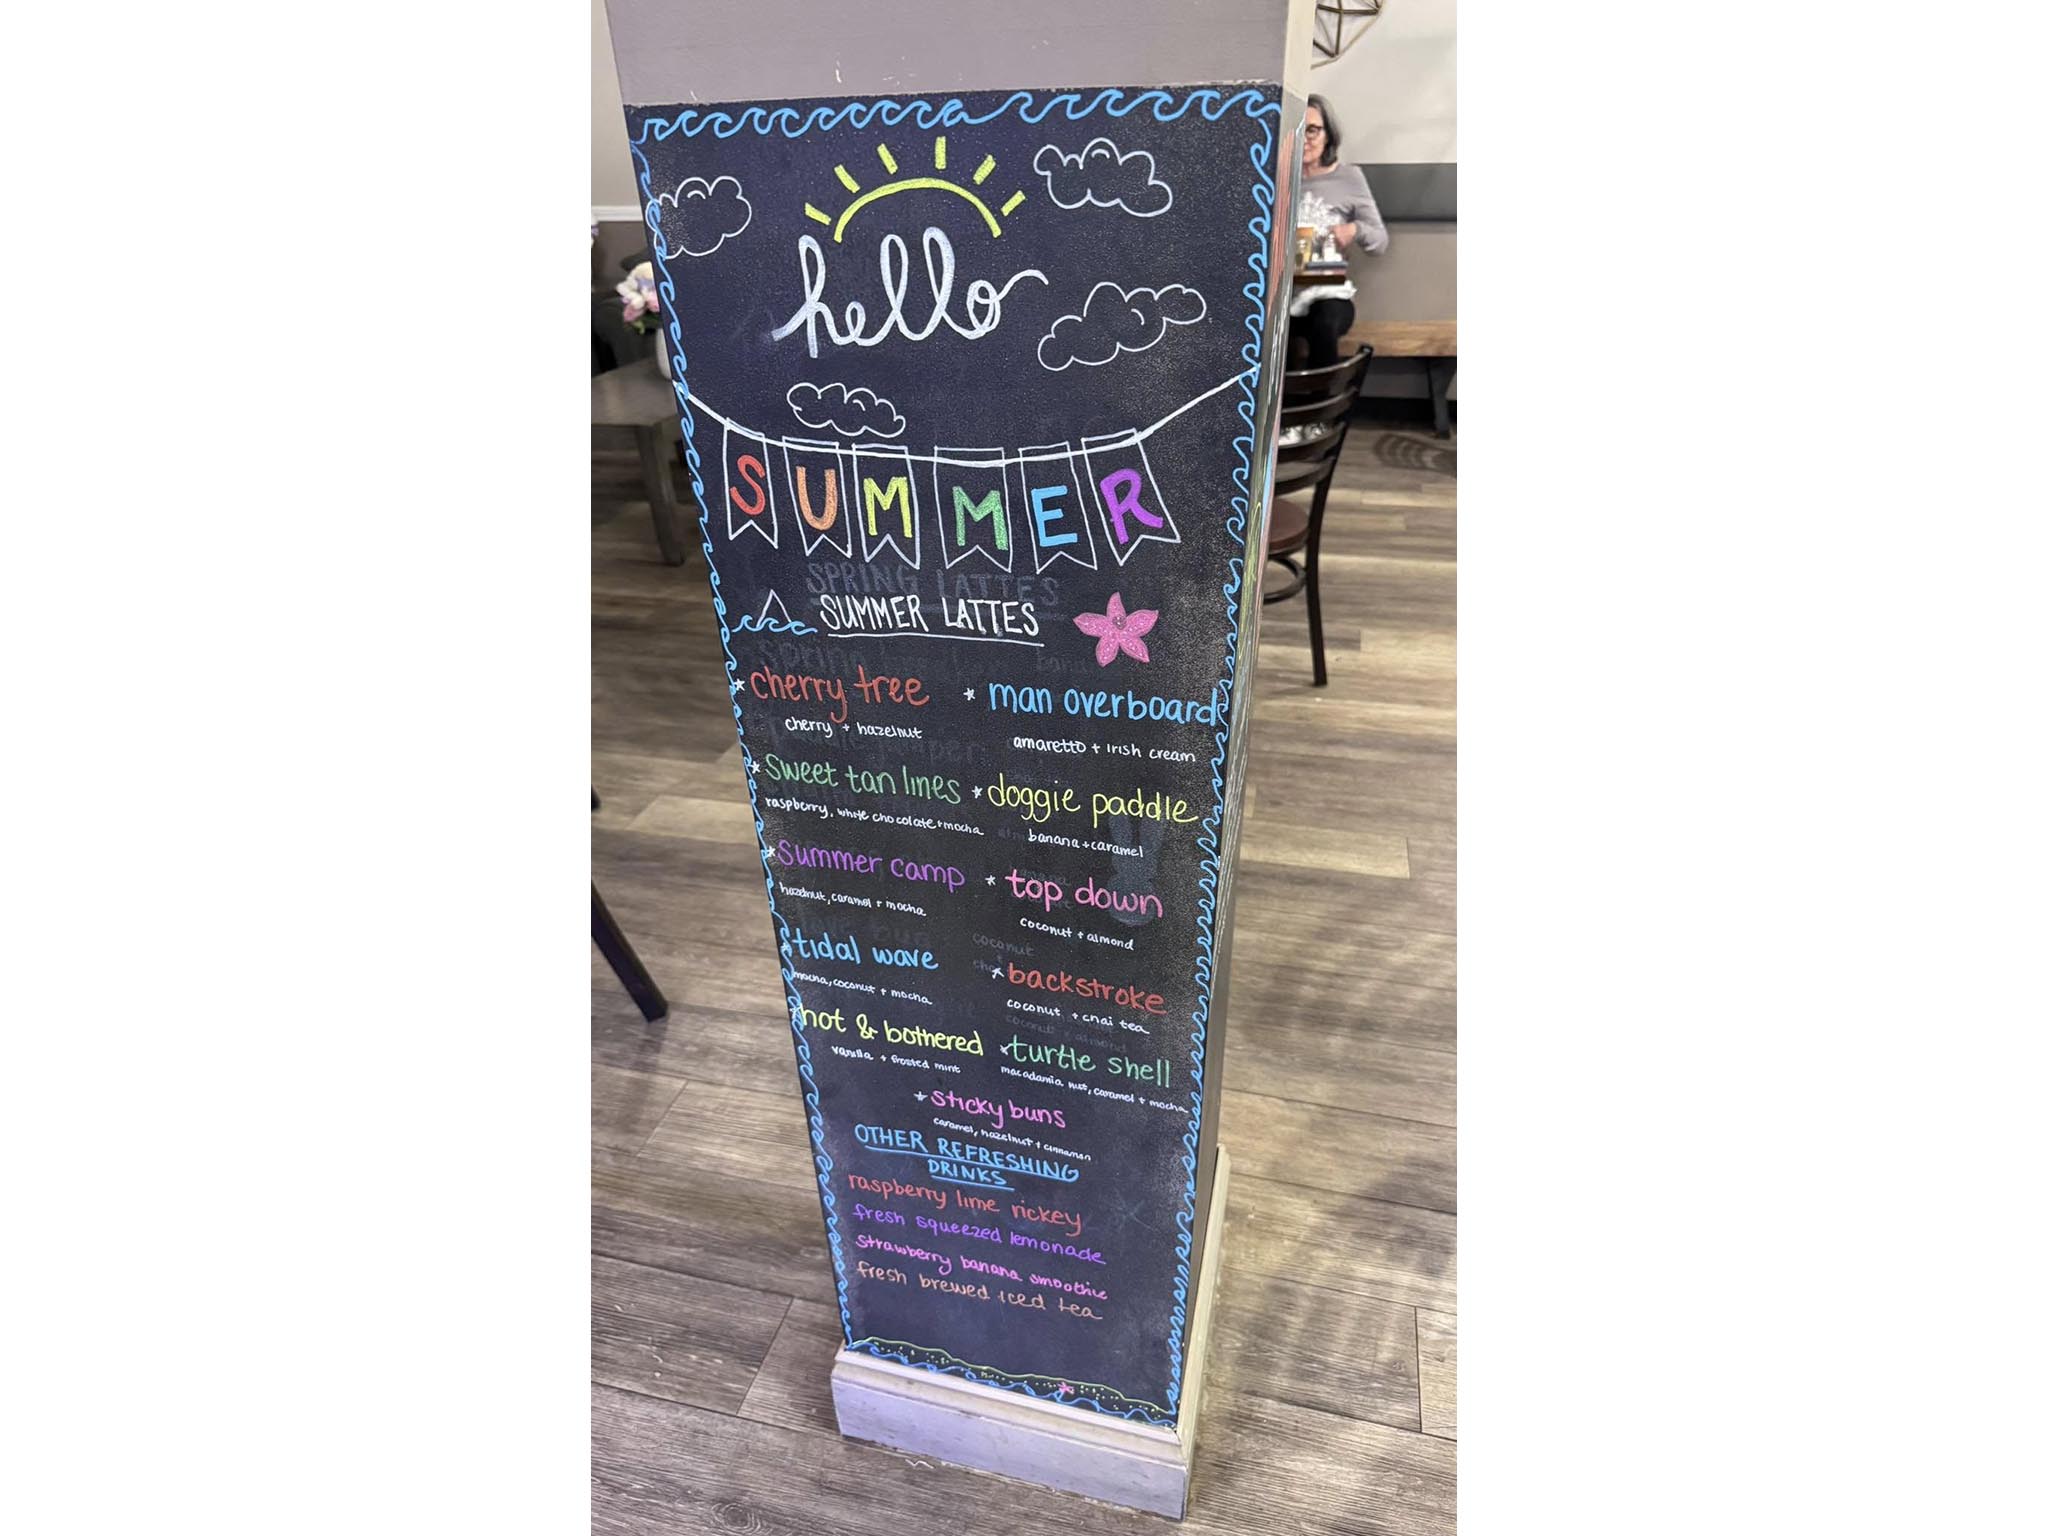 hello
SUMMER
SPRING LATTES
SUMMER LATTES
cherry tree
cherry + hazelnut
man overboard
amaretto + irish cream
sweet tan lines
raspberry, white chocolate + mocha
doggie paddle
banana + caramel
summer camp
hazelnut, caramel + mocha
top down
coconut + almond
tidal wave
mocha, coconut + mocha
backstroke
coconut + chai tea
hot & bothered
vanilla + frosted mint
turtle shell
macadamia nut, caramel + mocha
sticky buns
caramel, hazelnut + cinnamon
OTHER REFRESHING
DRINKS
raspberry lime rickey
fresh squeezed lemonade
strawberry banana smoothie
fresh brewed iced tea